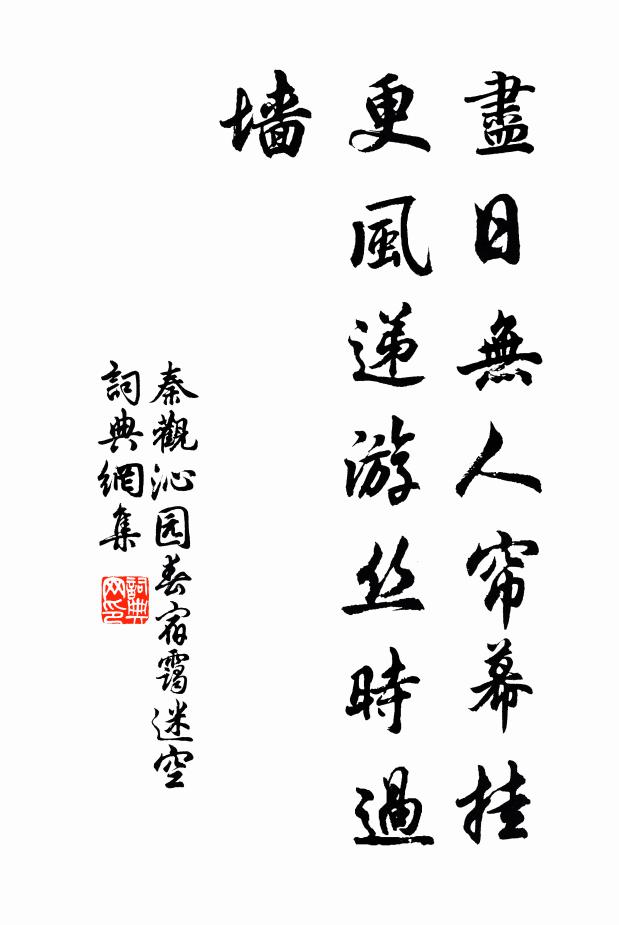 盡日無人帘幕挂
更風递游丝時過
墙
秦觀沁园春宿靄迷空
詞典網集
詞典
网印